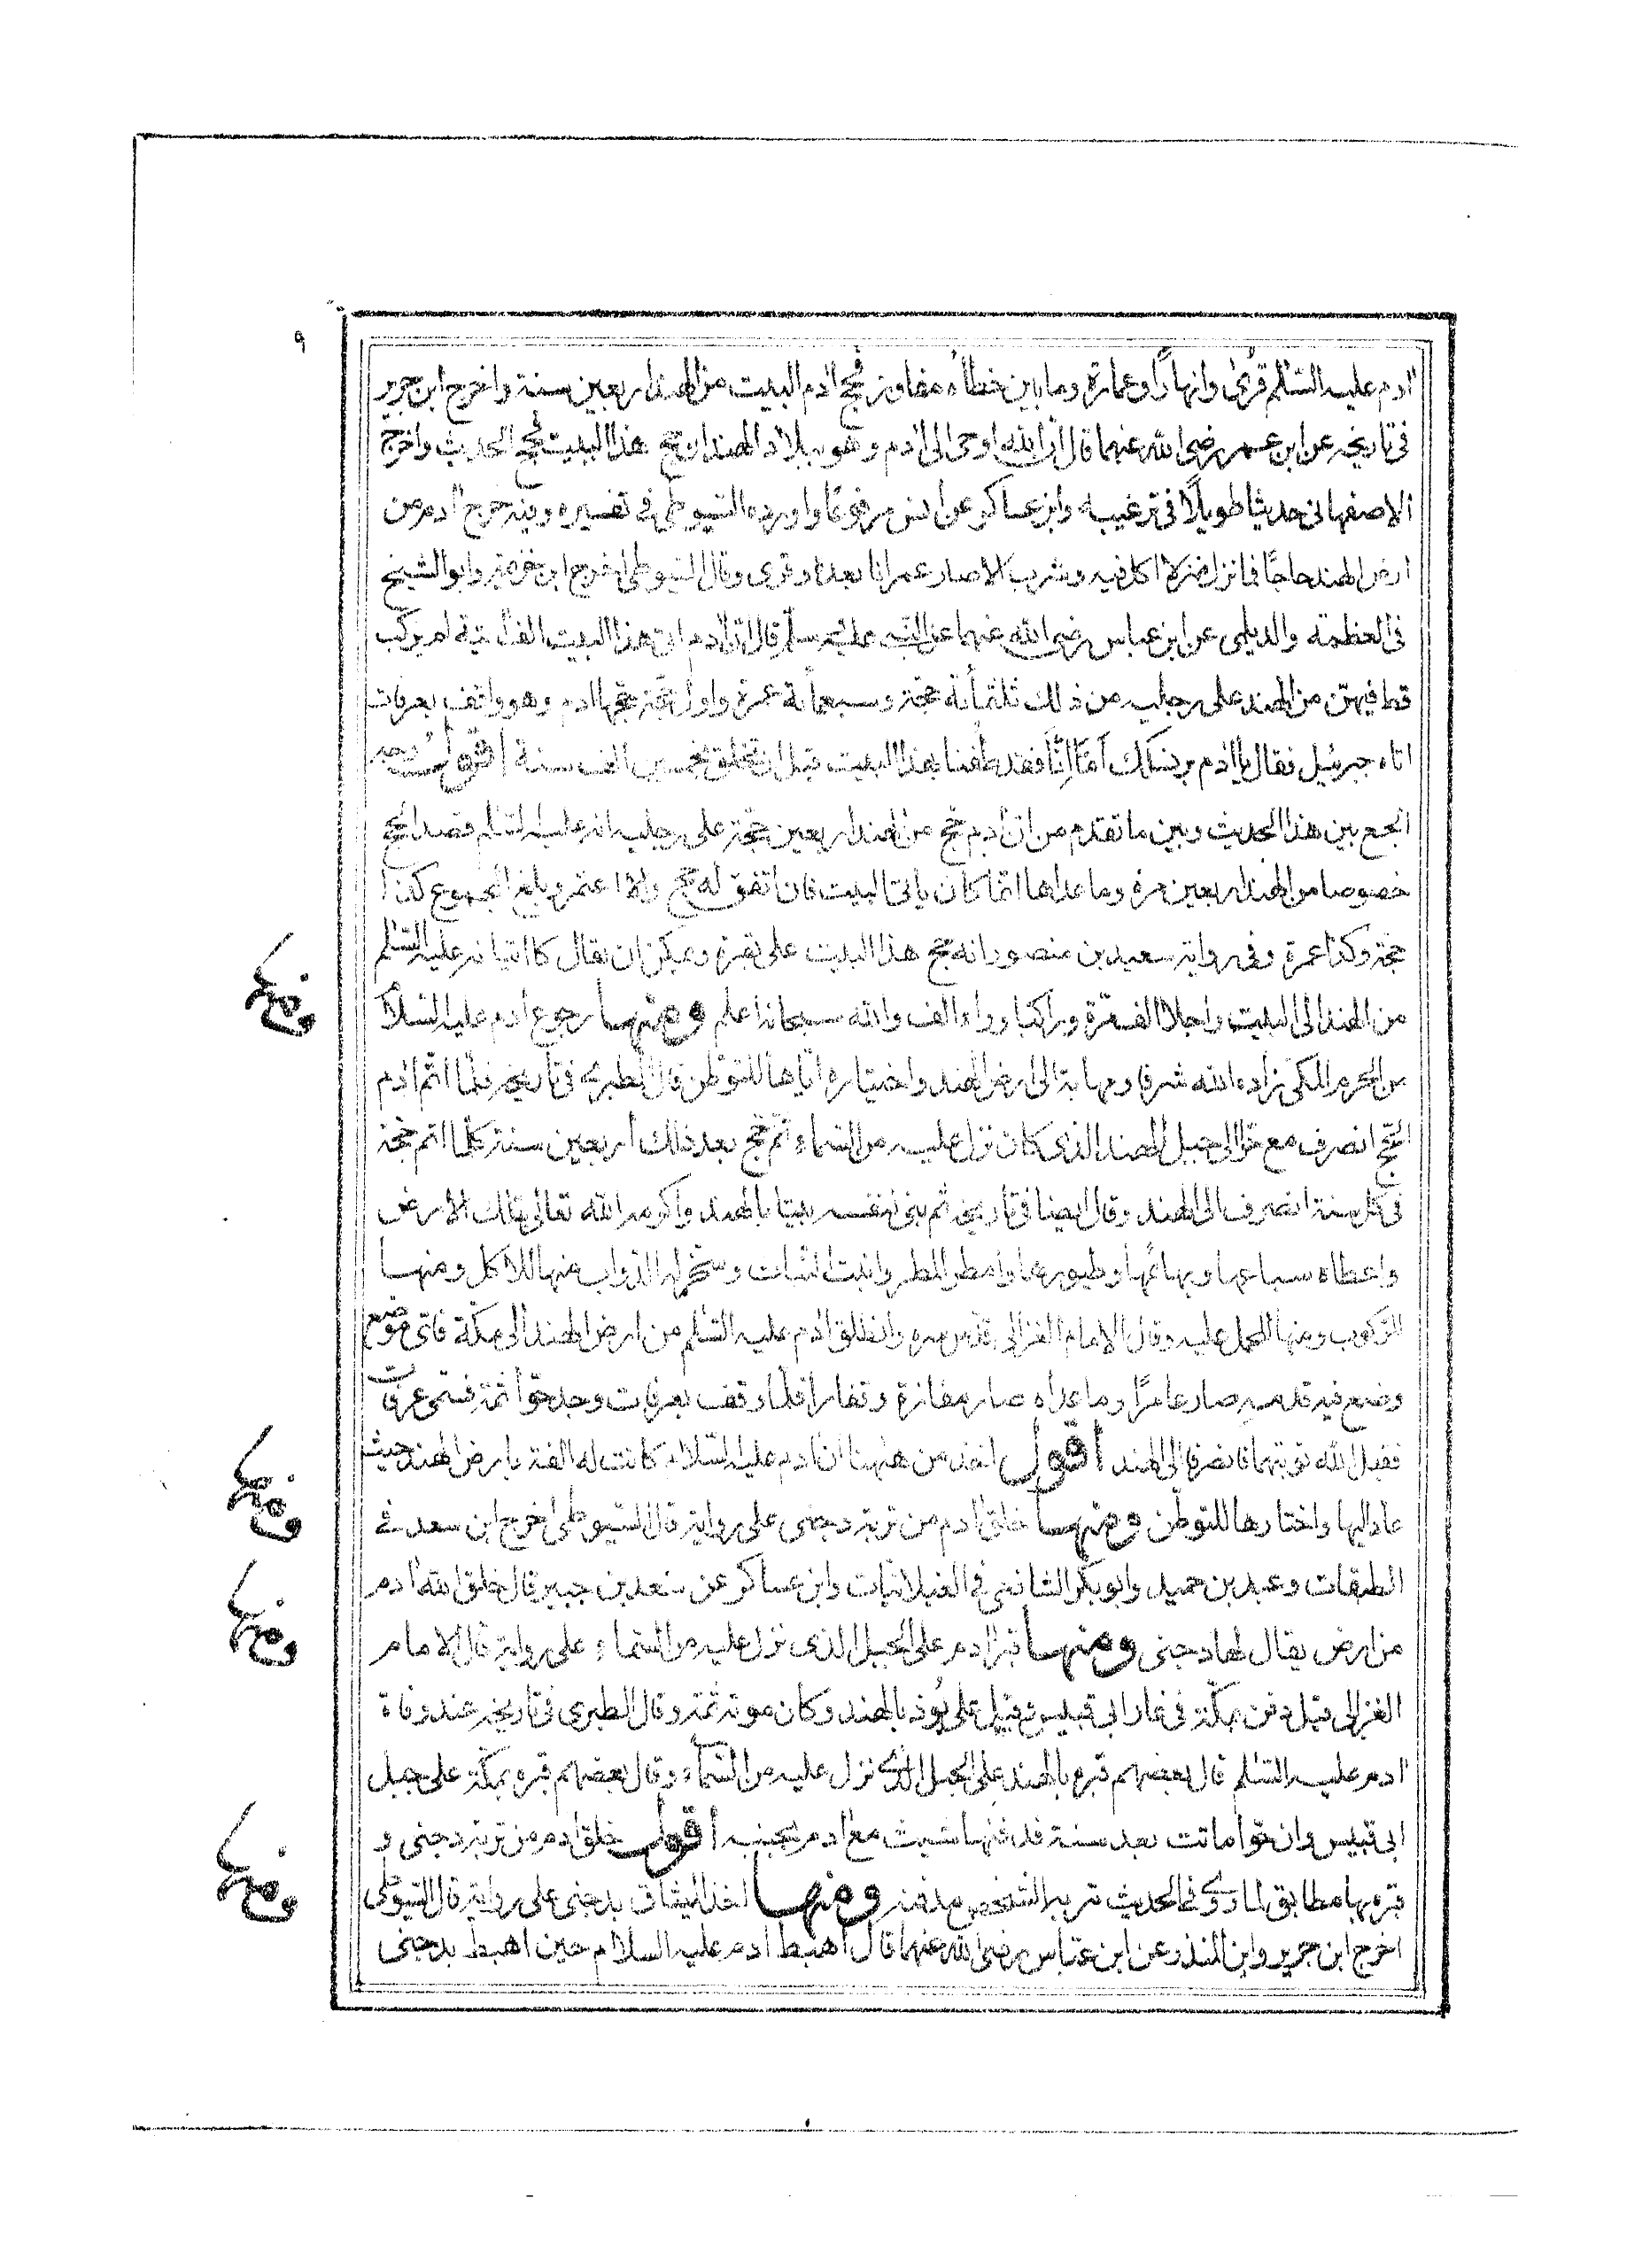 ٩
آدم عليه السّلم قرىً وانهاراً وعمارة وما بين خطاه مفاوز فحج آدم البيت من الهند اربعين سنة واخرج ابن جرير
فى تاريخه عن ابن عمر رضى الله عنهما قال انّ الله اوحى الى آدم وهو ببلاد الهند ان حج هذا البيت فحج الحديث واخرج
الاصفهانى حديثا طويلاً فى ترغيبه وابن عساكر عن انس مرفوعًا واورده السّيوطى فى تفسيره وفيه خرج آدم من
ارض الهند حاجًا فما نزل منزلا اكل فيه وشرب الا صار عمرانا بعده وقرى وقال السّيوطى اخرج ابن خزيمة وابو الشيخ
فى العظمة والديلمى عن ابن عباس رضى الله عنهما عن النّبى قال انّ آدم اتى هذا البيت الف اتية لم يركب
قط فيهنّ من الهند على رجليه من ذلك ثلثمأئة حجّة وسبعمأئة عمرة واول حجّة حجّها آدم وهو واقف بعرفات
اتاه جبرئيل فقال يا آدم برنسكك أمّا إنّا فقد طفنا بهذا البيت قبل ان تخلق بخمسين الف سنة اقول وجه
الجمع بين هذا الحديث وبين ما تقدم من انّ آدم حجّ من الهند اربعين حجّة على رجليه انه عليه السّلم قصد الحج
خصوصا من الهند اربعين مرة وما عداها انّما كان ياتى البيت فان اتفق له حج والا اعتمر وبلغ المجموع كذا
حجّة وكذا عمرة وفى رواية سعيد بن منصور انه حج هذا البيت على بقرة ويمكن ان يقال كان اتيانه عليه السّلم
من الهند الى البيت راجلا الف مرّة وراكبا وراء الف والله سبحانه اعلم ومنها رجوع آدم عليه السّلام
من الحرم المكّى زاده الله شرفا ومهابة الى ارض الهند واختياره ايّاها للتوطّن قال الطبرى فى تاريخه فلمّا اتمّ آدم
الحجّ انصرف مع حوّا الى جبل الهند الذى كان نزل عليه من السّماء ثمّ حجّ بعد ذلك اربعين سنة كلّما اتم حجّة
فى كل سنة انصرف الى الهند وقال ايضا فى تاريخه ثم بنى لنفسه بيتا بالهند واكرمه الله تعالى بتلك الارض
واعطاه سباعها وبهائمها وطيورها وامطر المطر وانبت النّبات وسخّر له الدّواب منها للاكل ومنها
للرّكوب ومنها للحمل عليه وقال الامام الغزالى قدّس سره وانطلق آدم عليه السّلم من ارض الهند الى مكّة فاىّ موضع
وضع فيه قدميه صار عامرًا وما عداه صار مفازة وقفارا فلمّا وقف بعرفات وجد حوّا ثمة فسمى عرفات
فقبل الله توبتهما فانصرفا الى الهند أقول اخذ من ههنا انّ آدم عليه السّلام كانت له الفة بارض الهند حيث
عاد اليها واختارها للتوطّن ومنها خلق آدم من تربة دجنى على رواية قال السّيوطى اخرج ابن سعد فى
الطبقات وعبد بن حميد وابو بكر الشافعى فى الغيلانيات وابن عساكر عن سعد بن جبير قال خلق الله آدم
من ارض يقال لها دجنى ومنها قبر آدم على الجبل الذى نزل عليه من السّماء على رواية قال الامام
الغزالى قيل دفن بمكّة فى غار ابى قبيس وقيل على بُوذ بالهند وكان موته ثمّة وقال الطبرى فى تاريخه عند وفاة
آدم عليه السّلم قال بعضهم قبره بالهند على الجبل الذى نزل عليه من السّماء وقال بعضهم قبره بمكّة على جبل
ابى قبيس وان حوّا ماتت بعد سنة فدفنها شيث مع آدم بجنبه أقول خلق آدم من تربة دجنى و
قبره بها مطابق لما روى فى الحديث تربة الشّخص مدفنه ومنها اخذ الميثاق بدجنى على رواية قال السّيوطى
اخرج ابن جرير وابن المنذر عن ابن عبّاس رضى الله عنهما قال اهبط آدم عليه السلام حين اهبط بدجنى
ومنها
ومنها
ومنها
ومنها